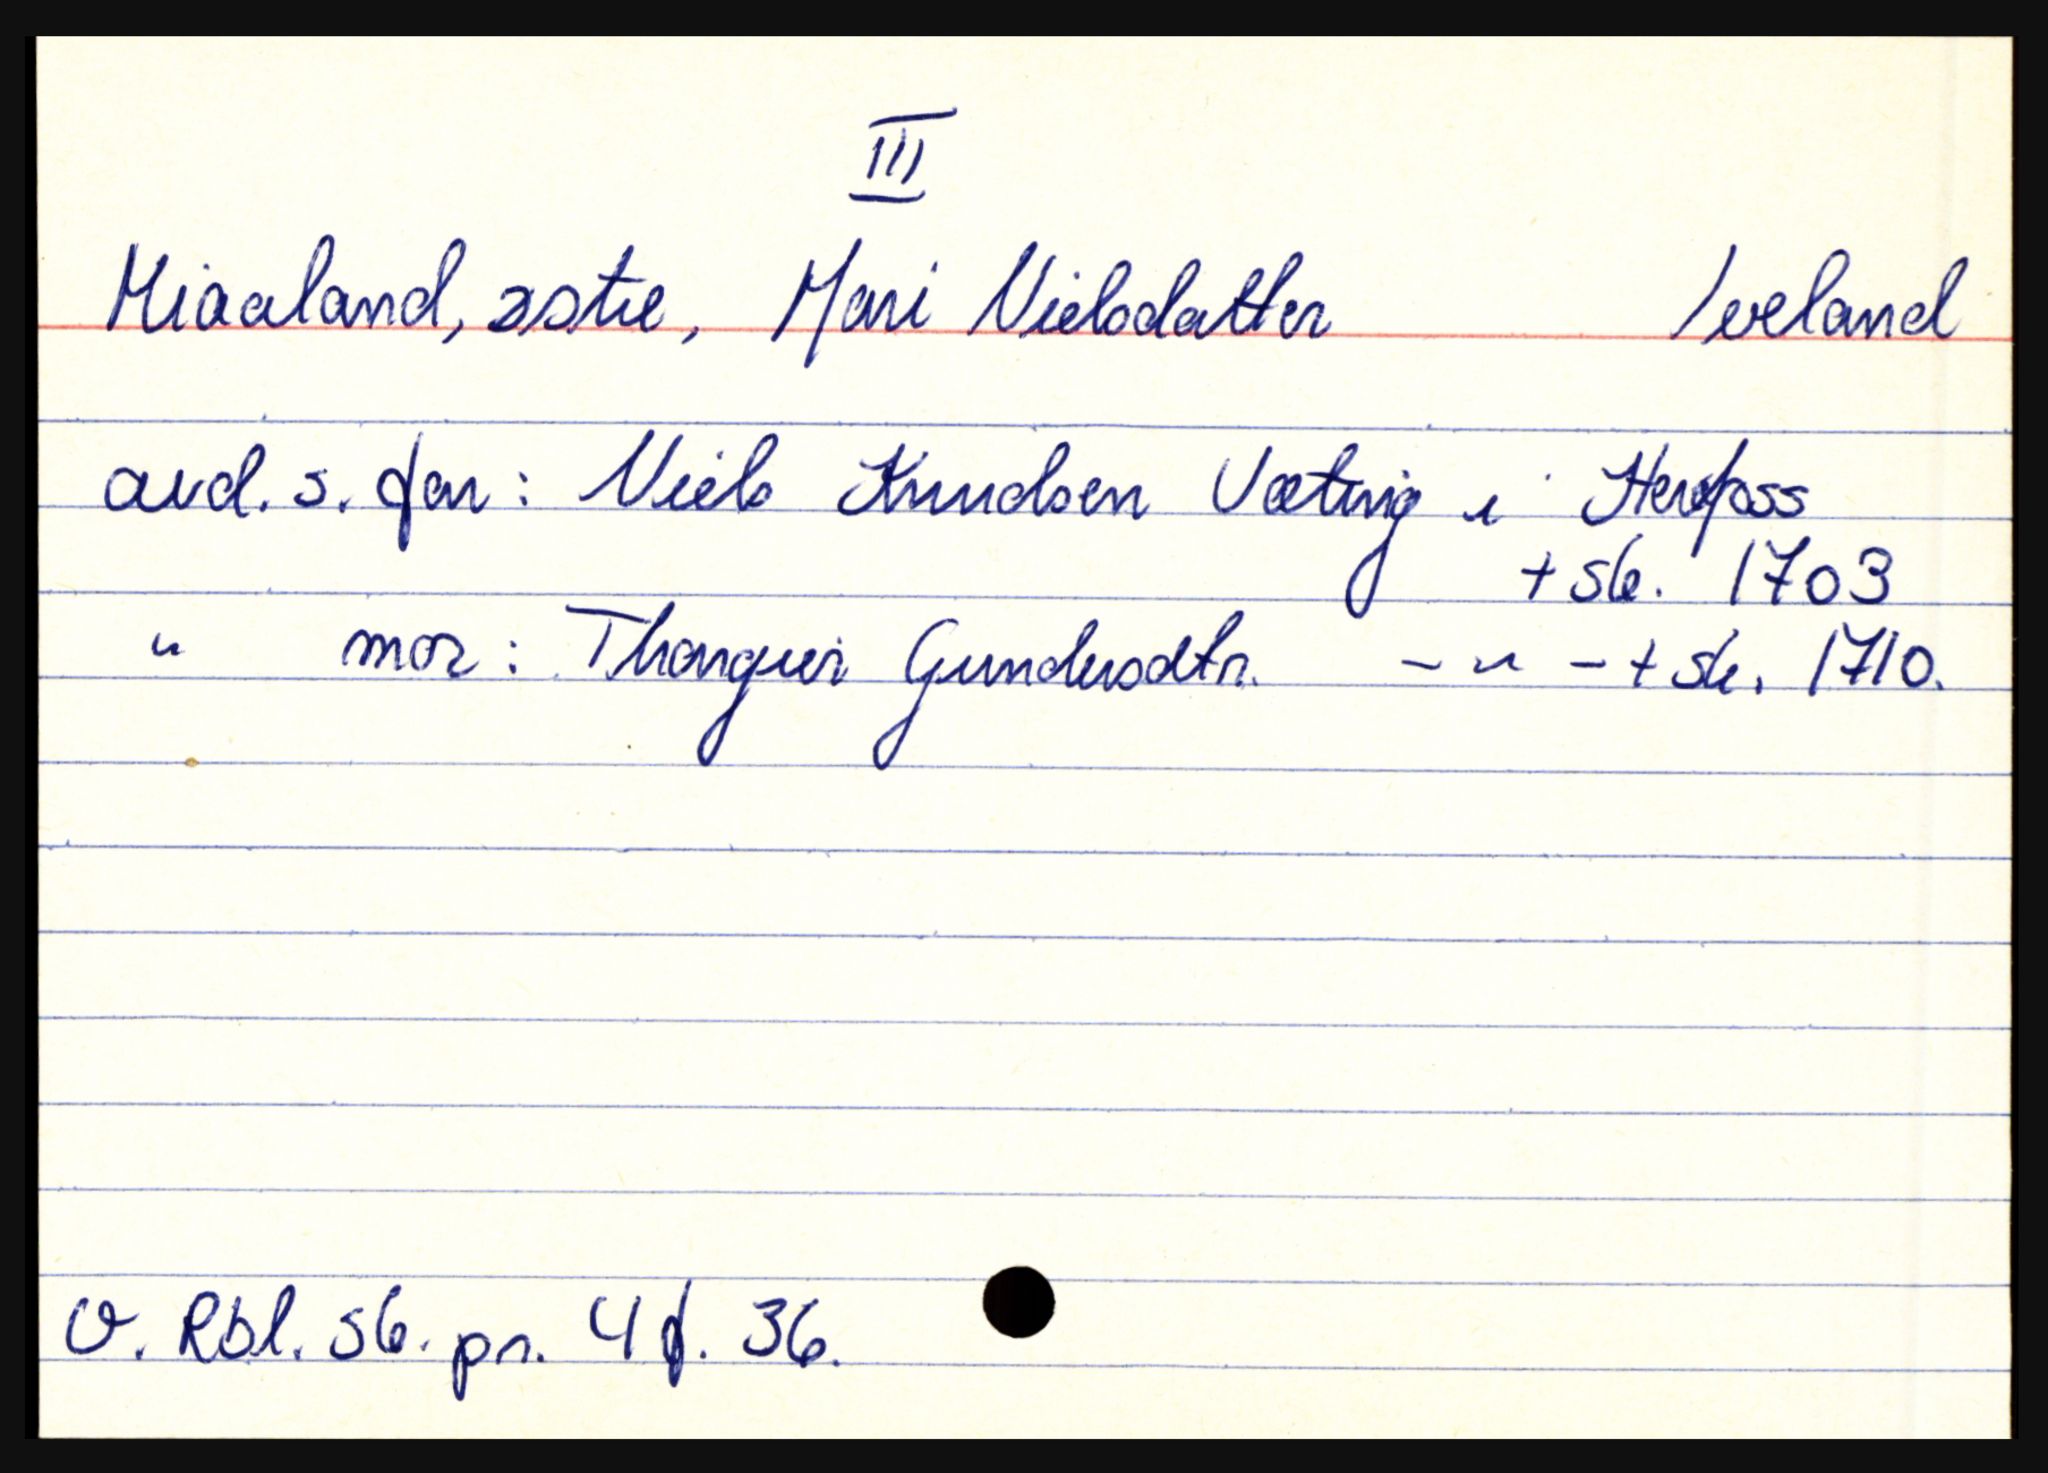 III
Miaaland, østre, Mari Nielsdatter Iveland
avd. s. far: Niels Knudsen Vætting i Herefoss
+ sk. 1703
" mor: Thorgier Gundersdtr. - " - + sk. 1710.
V. Rbl. sk. pr. 4 f. 36.